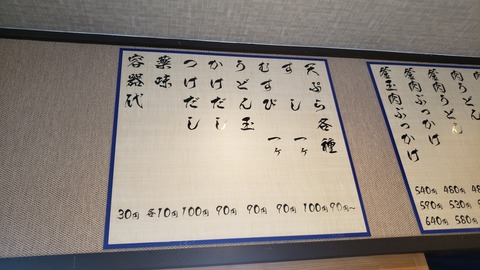 天ぷら各種 90円~
すし 一ヶ 100円
むすび 一ヶ 90円
うどん玉 90円
かけだし 90円
つけだし 100円
薬味 各10円
容器代 30円
肉うどん
肉ぶっかけ
釜玉肉ぶっかけ
540円 480円
590円 530円
640円 580円